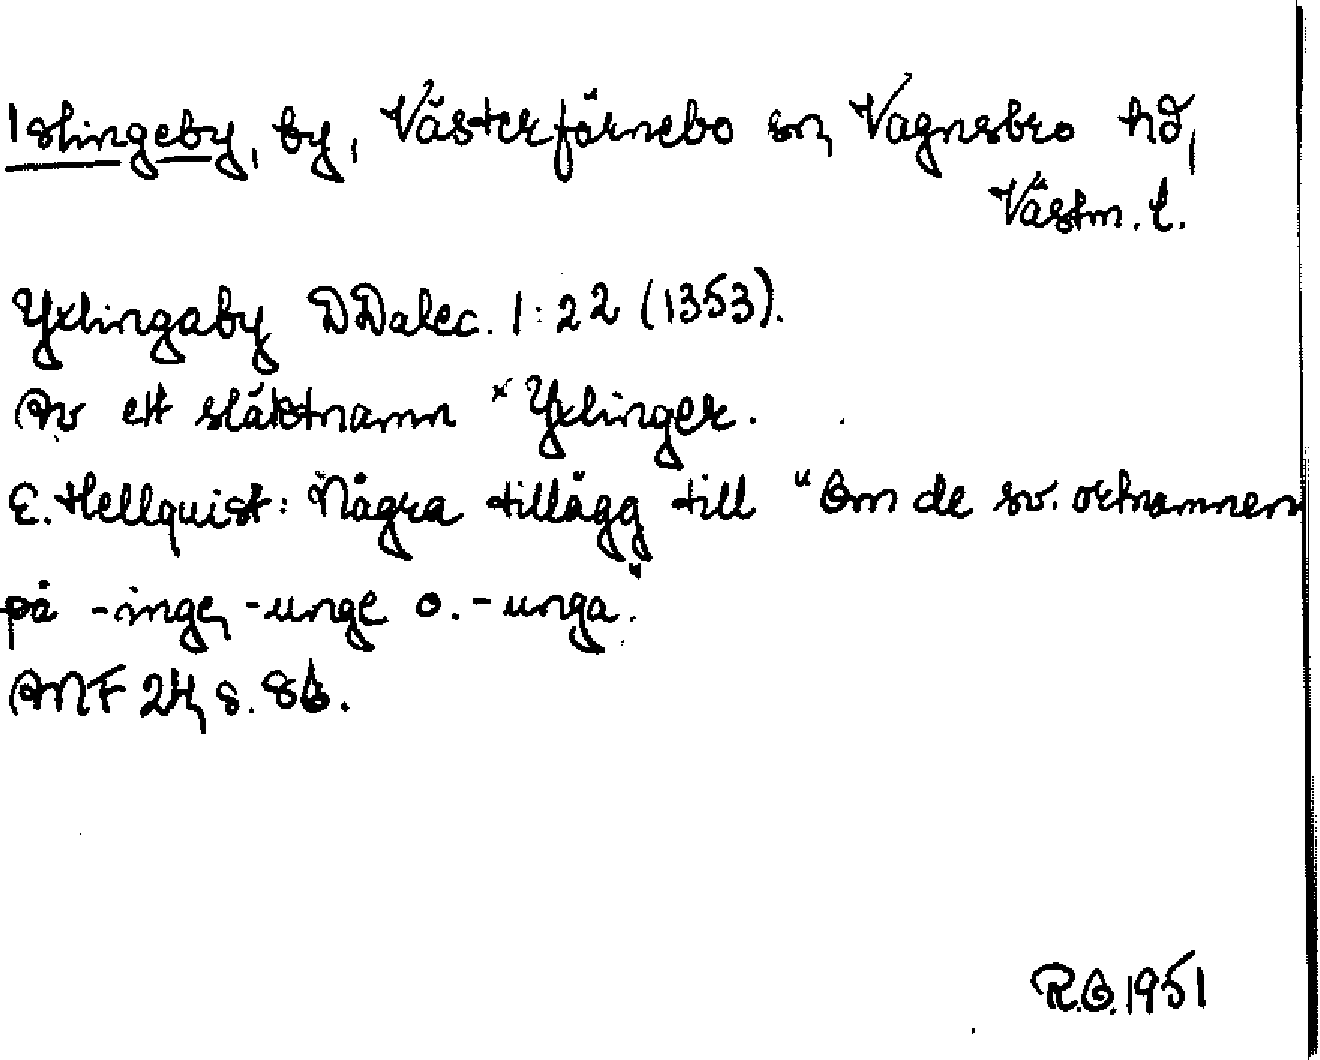 Islingeby, by, Västerfärnebo sn, Vagnsbro hd,
Västm. l.
Yxlingaby DDalec. 1:22 (1353).
Av ett släktnamn *Yxlinger.
E. Hellquist: Några tillägg till "Om de sv. ortnamnen
på -inge, -unge o. -unga."
ANF 24, s. 86.
R.O. 1951